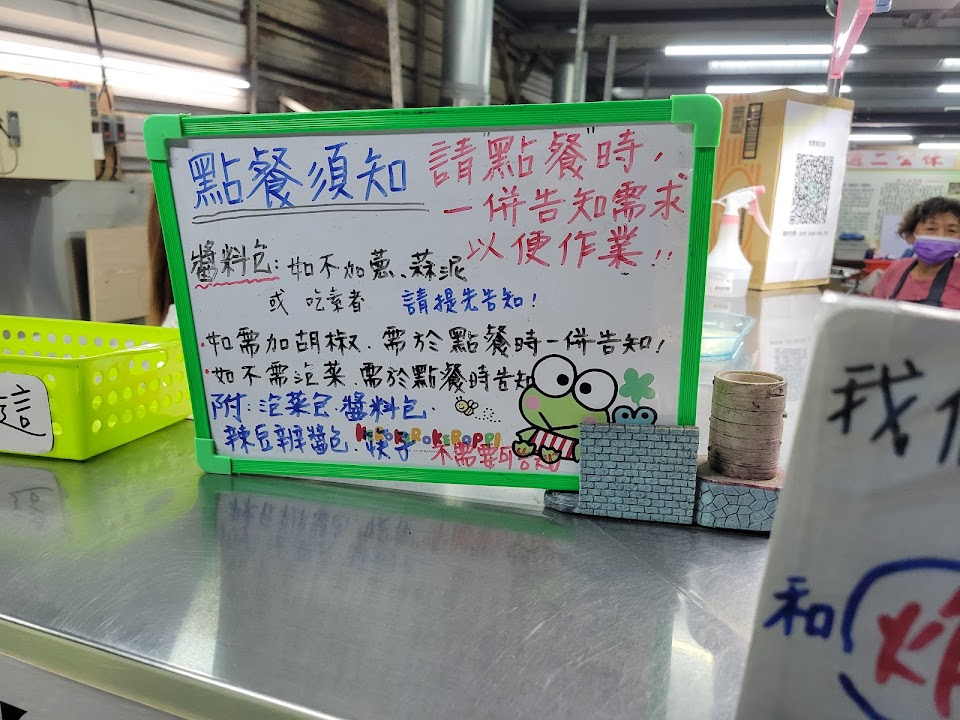 點餐須知
請"點餐"時，
一併告知需求
以便作業!!
醬料包：如不加蔥、蒜泥
或 吃素者 請提先告知！
•如需加胡椒．需於點餐時一併告知！
•如不需泡菜．需於點餐時告知
附：泡菜包．醬料包．
辣豆辦醬包．筷子 不需要可告知
KEROKEROKEROPPI
這
我
和
週二公休